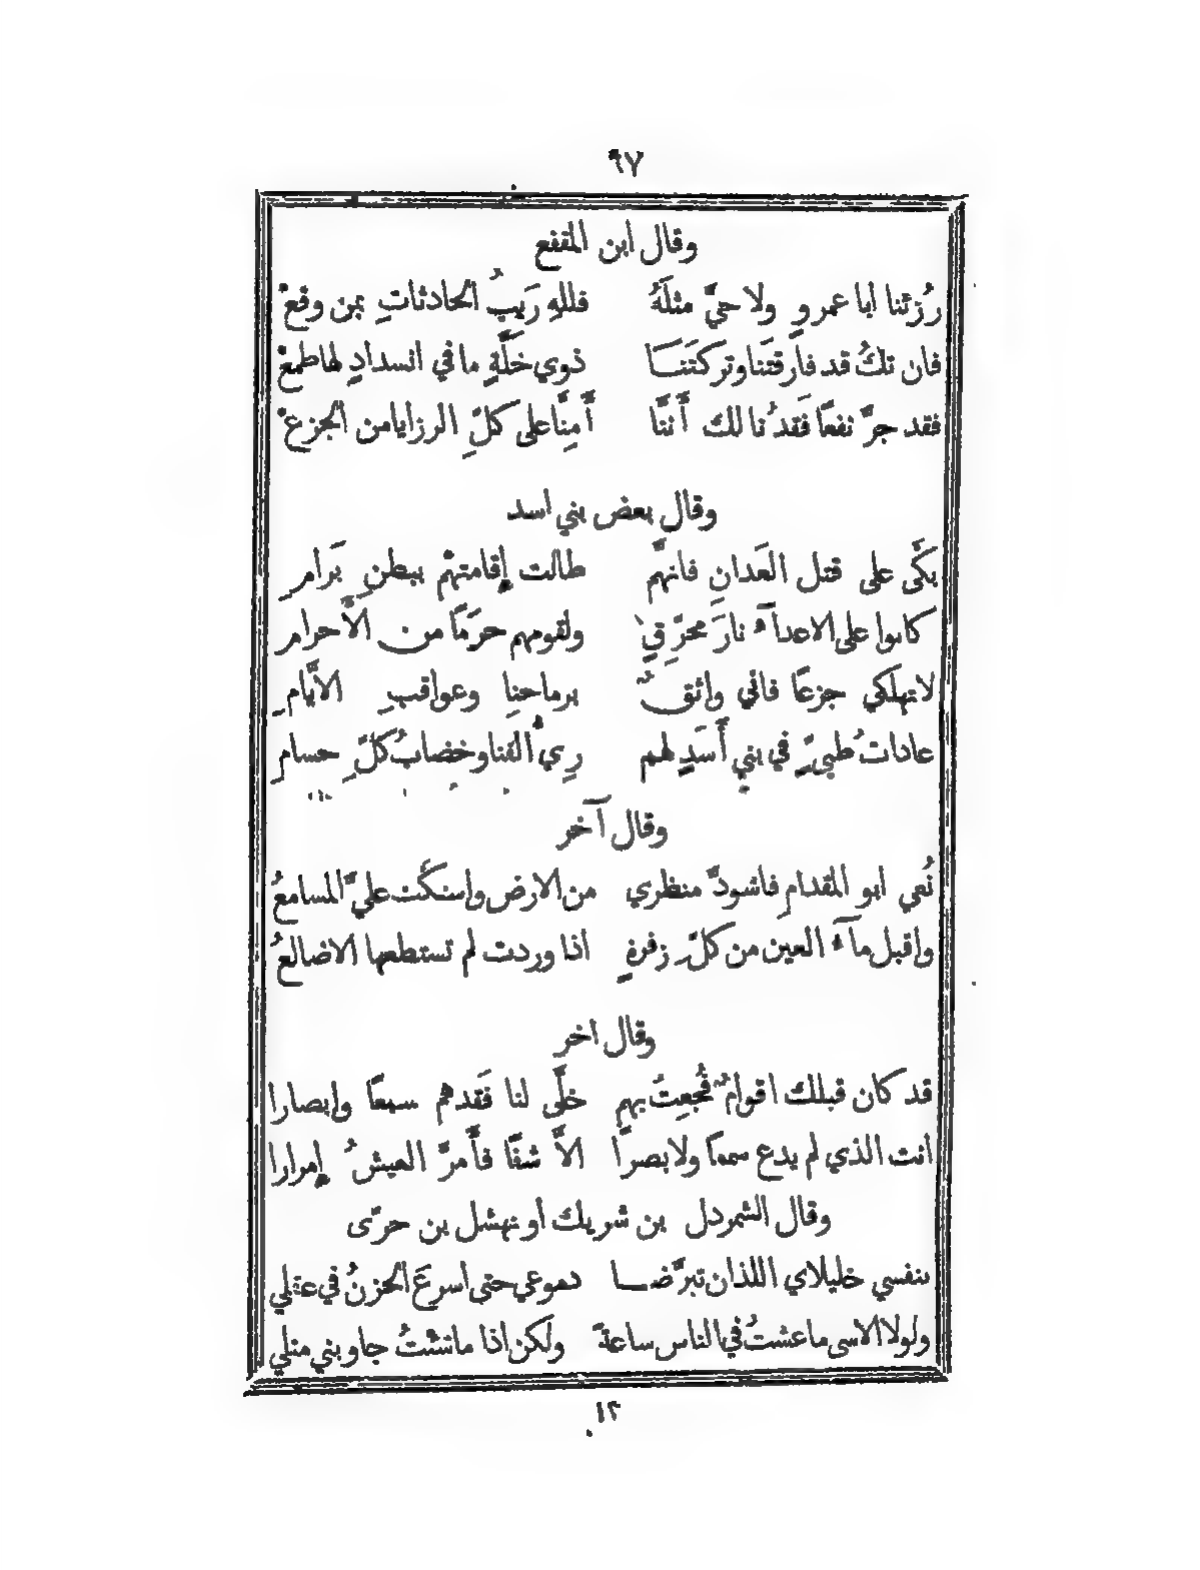 ٩٧
وقال ابن المقفع
رُزئنا ابا عمروٍ ولا حيَّ مثلَهُ فللهِ رَيبُ الحادثاتِ بمن وقعْ
فان تكُ قد فارقتَنا وتركتَنا ذوي خلَّةٍ ما في انسدادٍ لها طمعْ
فقد جرَّ نفعًا فَقدُنا لك أَنَّنا أَمِنَّا على كلِّ الرزايا من الجزعْ
وقال بعض بني اسد
بكّي على قتل العَدانِ فانهم طالت إِقامتهُم ببطنِ بَرامِ
كانوا على الاعدآء نارَ محرّقٍ ولقومهم حرَمًا من الأَحرامِ
لا تهلكي جزعًا فاني واثقٌ برماحنا وعواقبِ الأيَّامِ
عاداتُ طيّءٍ في بني أَسَدٍ لهم رِيُّ القنا وخضابُ كلِّ حسامِ
وقال آخر
نُعي ابو المقدامِ فاسودَّ منظري من الارض واستكَّت عليَّ المسامعُ
واقبل مآء العين من كلِّ زفرةٍ اذا وردت لم تستطعها الاضالعُ
وقال اخر
قد كان قبلك اقوامٌ فُجِعتُ بهم خلَّى لنا فَقدهم سمعًا وابصارا
انت الذي لم يدع سمعًا ولا بصرًا الاَّ شفًا فأَمرَّ العيشُ إِمرارا
وقال الشمردل بن شريك أو نهشل بن حرّى
بنفسي خليلاي اللذان تبرَّضا دموعي حتى اسرعَ الحزنُ في عقلي
ولولا الاسى ما عشتُ في الناس ساعةً ولكن اذا ما شئتُ جاوبني مثلي
١٢